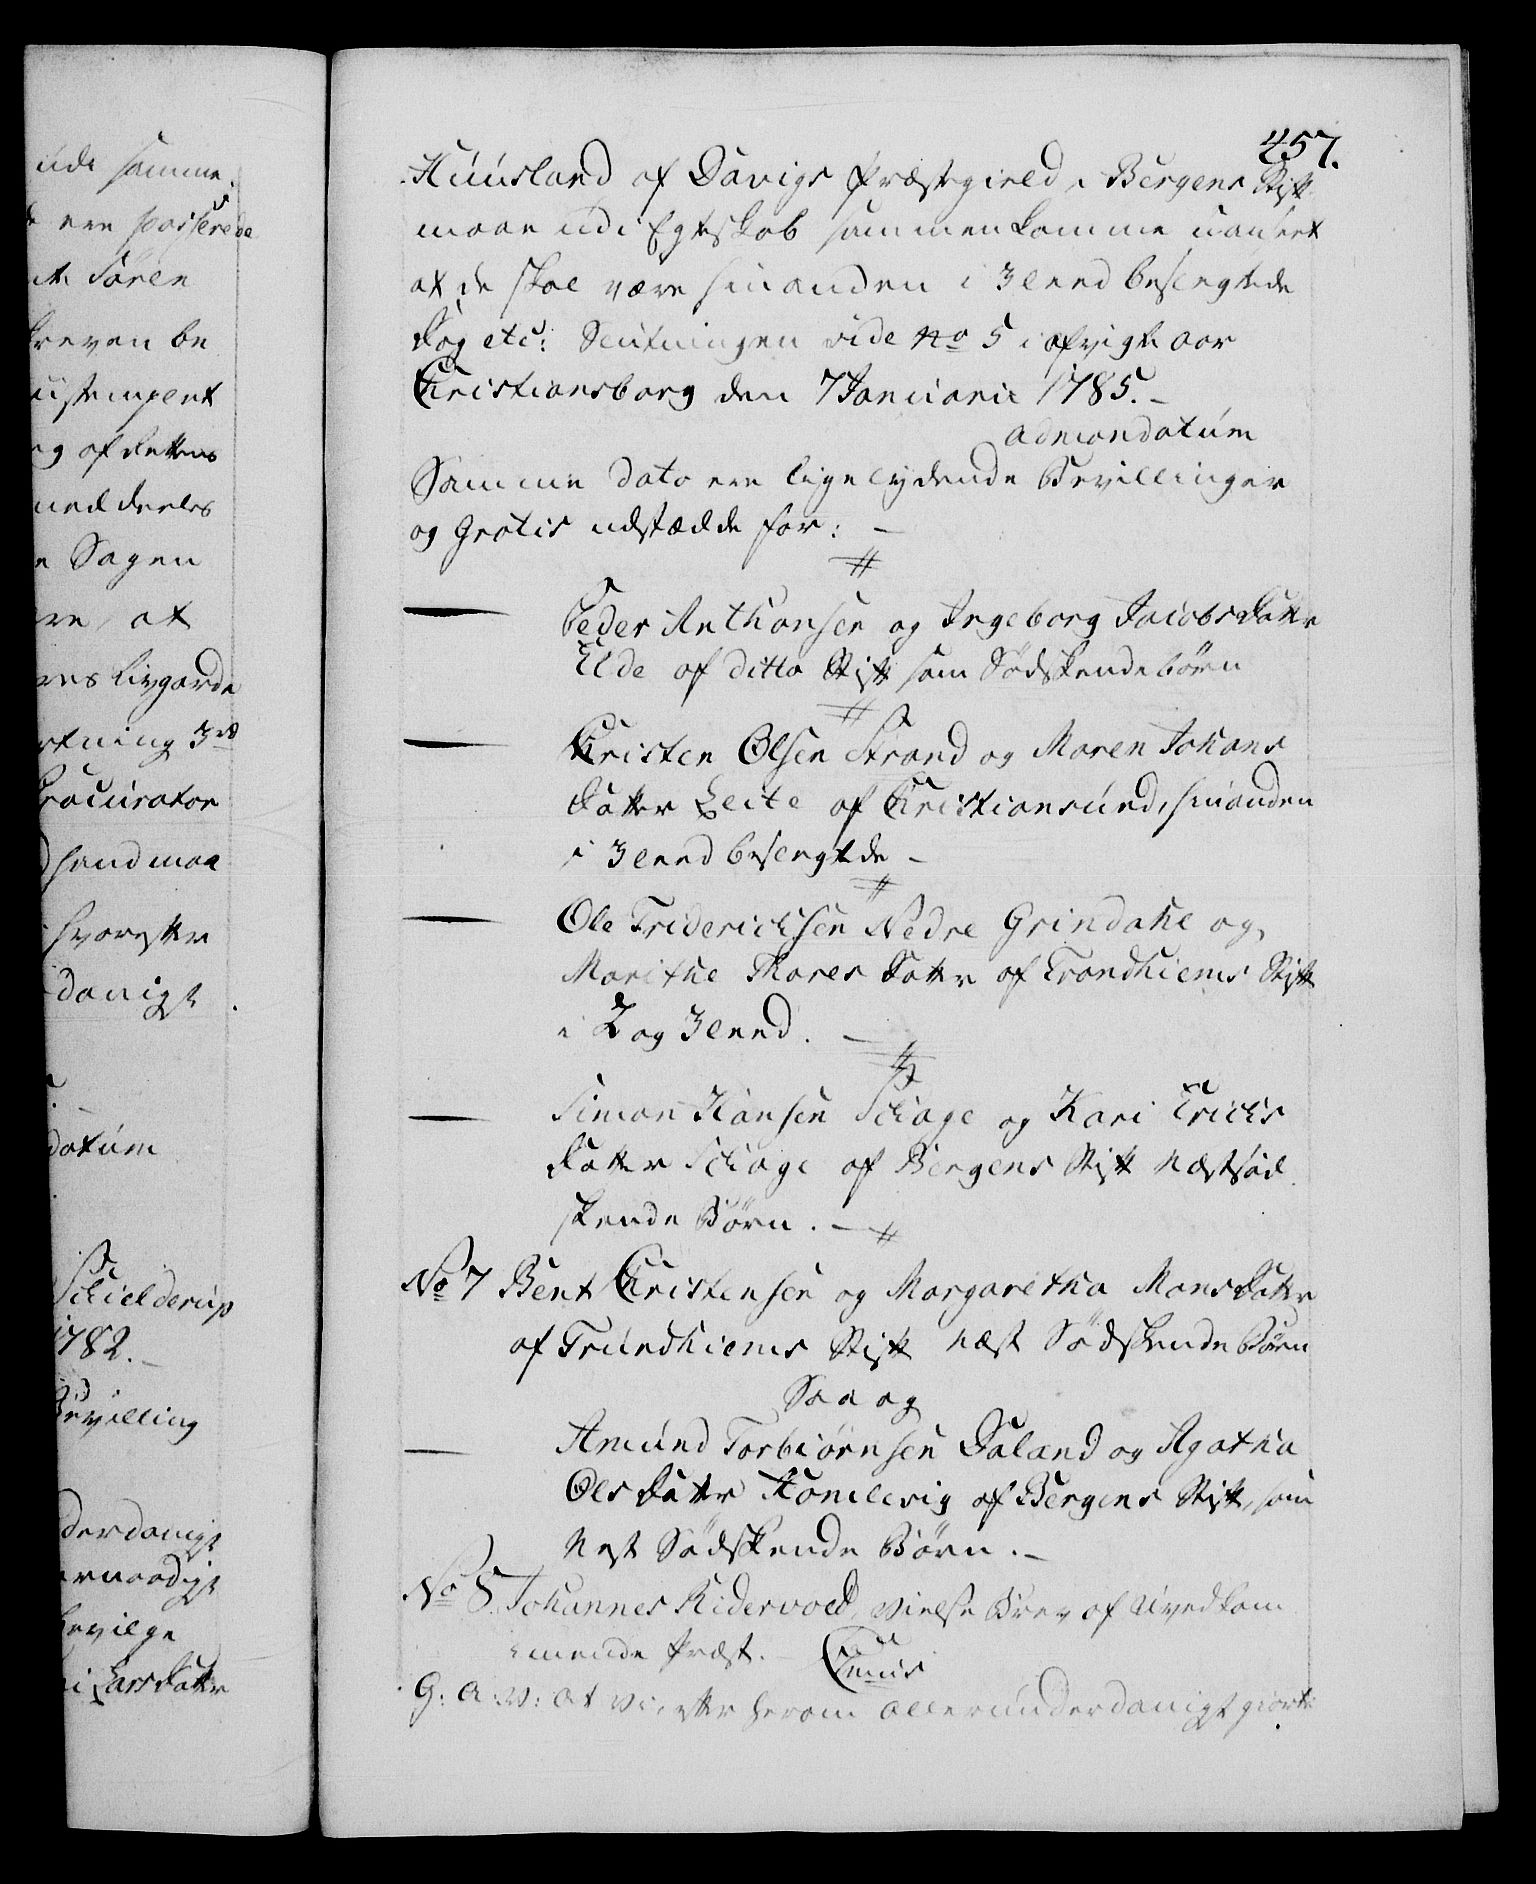 ude samme.
ere passerede
Søren
kreven be
ustempert
og af Rettens
meddeeles
Sagen
at
res Livgarde
rtning 3de
Procurator
hand maa
hvorefter
danigt
datum
Schielderup
1782.
Bevilling
derdanigt
ernaadigst
bevilge
Larsdatter
457.
Huusland af Davigs Præstegield i Bergens Stift
maae udi Egteskab sammenkomme uanseet
at de skal være hinanden i 3 Leed beslegtede
Dog etc: Slutningen vide No 5 i afvigte Aar
Christiansborg den 7 Januarii 1785.
ad mandatum
Samme dato ere ligelydende Bevillinger
og Gratis udstædde for:
Peder Anthonsen og Ingeborg Jacobsdatter
Elde af ditto Stift som Sødskendebørn
Christen Olsen Strand og Maren Johans
datter Leite af Christiansund, hinanden
i 3 Leed beslegtede
Ole Friderichsen Nedre Grindahl og
Marithe Thores datter af Trondhiems Stift
i 2 og 3 Leed.
Simon Hansen Schage og Kari Erichs
datter Schage af Bergens Stift Næstsød
skende Børn.
No 7 Bent Christensen og Margaretha Monsdatter
af Trundhiems Stift næst Sødskende Børn
Saa og
Amund Torbiørnsen Daland og Agatha
Olsdatter Homlevig af Bergens Stift, som
Nest Sødskende Børn.
No 8. Johannes Ridervold, Vielse Brev af Uvedkom
mende Præst.
G: A: V: At Vi, efter herom allerunderdanigst giorte